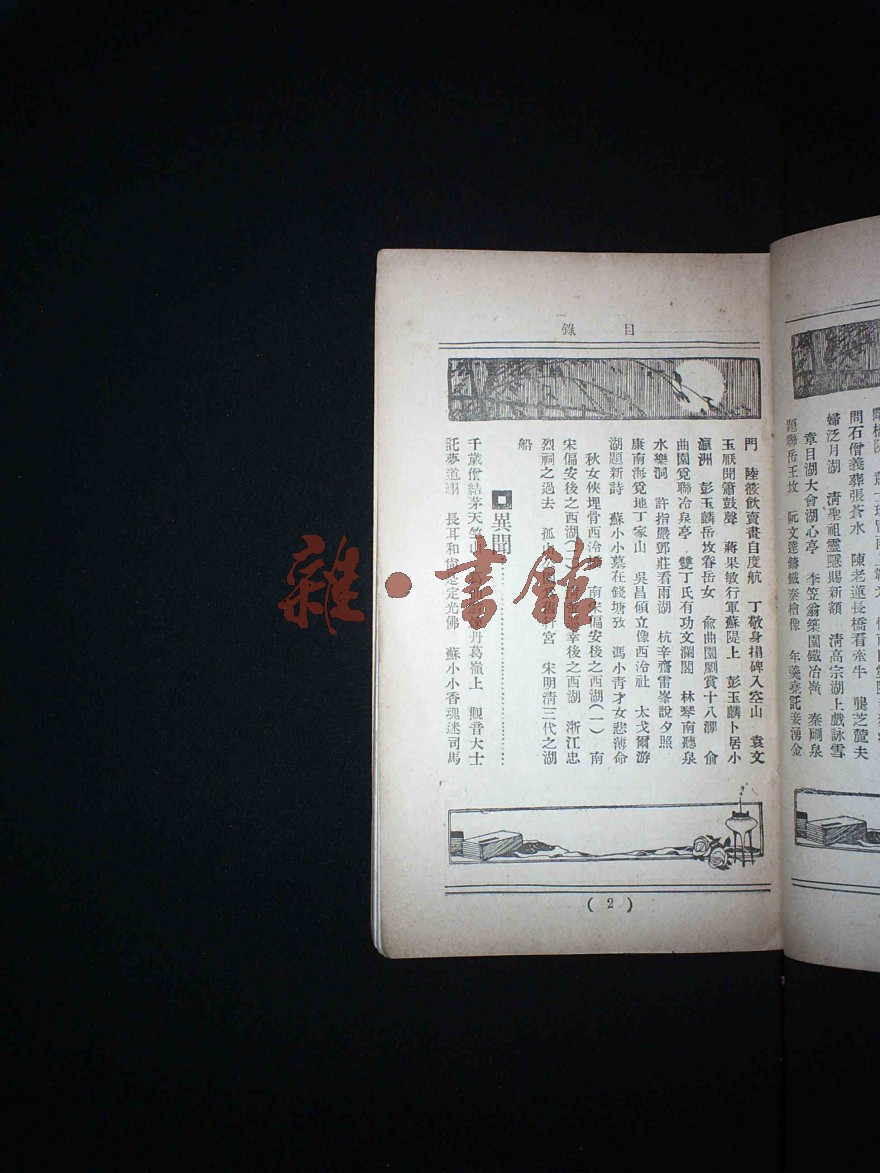 題聯岳王坟　阮文達鑄鐵秦檜像　年羹堯託妾湧金
章目湖大會湖心亭　李笠翁築園鐵冶嶺　秦㵎泉
婦泛月湖　清聖祖靈隱賜新額　清高宗湖上戲詠雪
問石僧義葬張蒼水　陳老蓮長橋看牽牛　龔芝麓夫
目錄
門　陸筱飲賣畫自度航　丁敬身搨碑入空山　袁文
玉厭聞簫鼓聲　蔣果敏行軍蘇隄上　彭玉麟卜居小
瀛洲　彭玉麟岳坟眷岳女　俞曲園剧賞十八澗　俞
曲園覓聯冷泉亭　雙丁氏有功文瀾閣　林琴南聽泉
水樂洞　許指嚴鄧莊看雨湖　杭辛齋雷峯說夕照
康南海覓地丁家山　吳昌碩立像西泠社　太戈爾游
湖題新詩　蘇小小墓在錢塘攷　馮小青才女悲薄命
秋女俠埋骨西泠　南宋偏安後之西湖(一)　南
宋偏安後之西湖(二)　幸後之西湖　浙江忠
烈祠之過去　孤山　宮　宋明清三代之湖
船
異聞
千歲僧結茅天竺山　丹葛嶺上　觀音大士
託夢道翊　長耳和尙是定光佛　蘇小小香瑰迷司馬
(2)
雜·書館